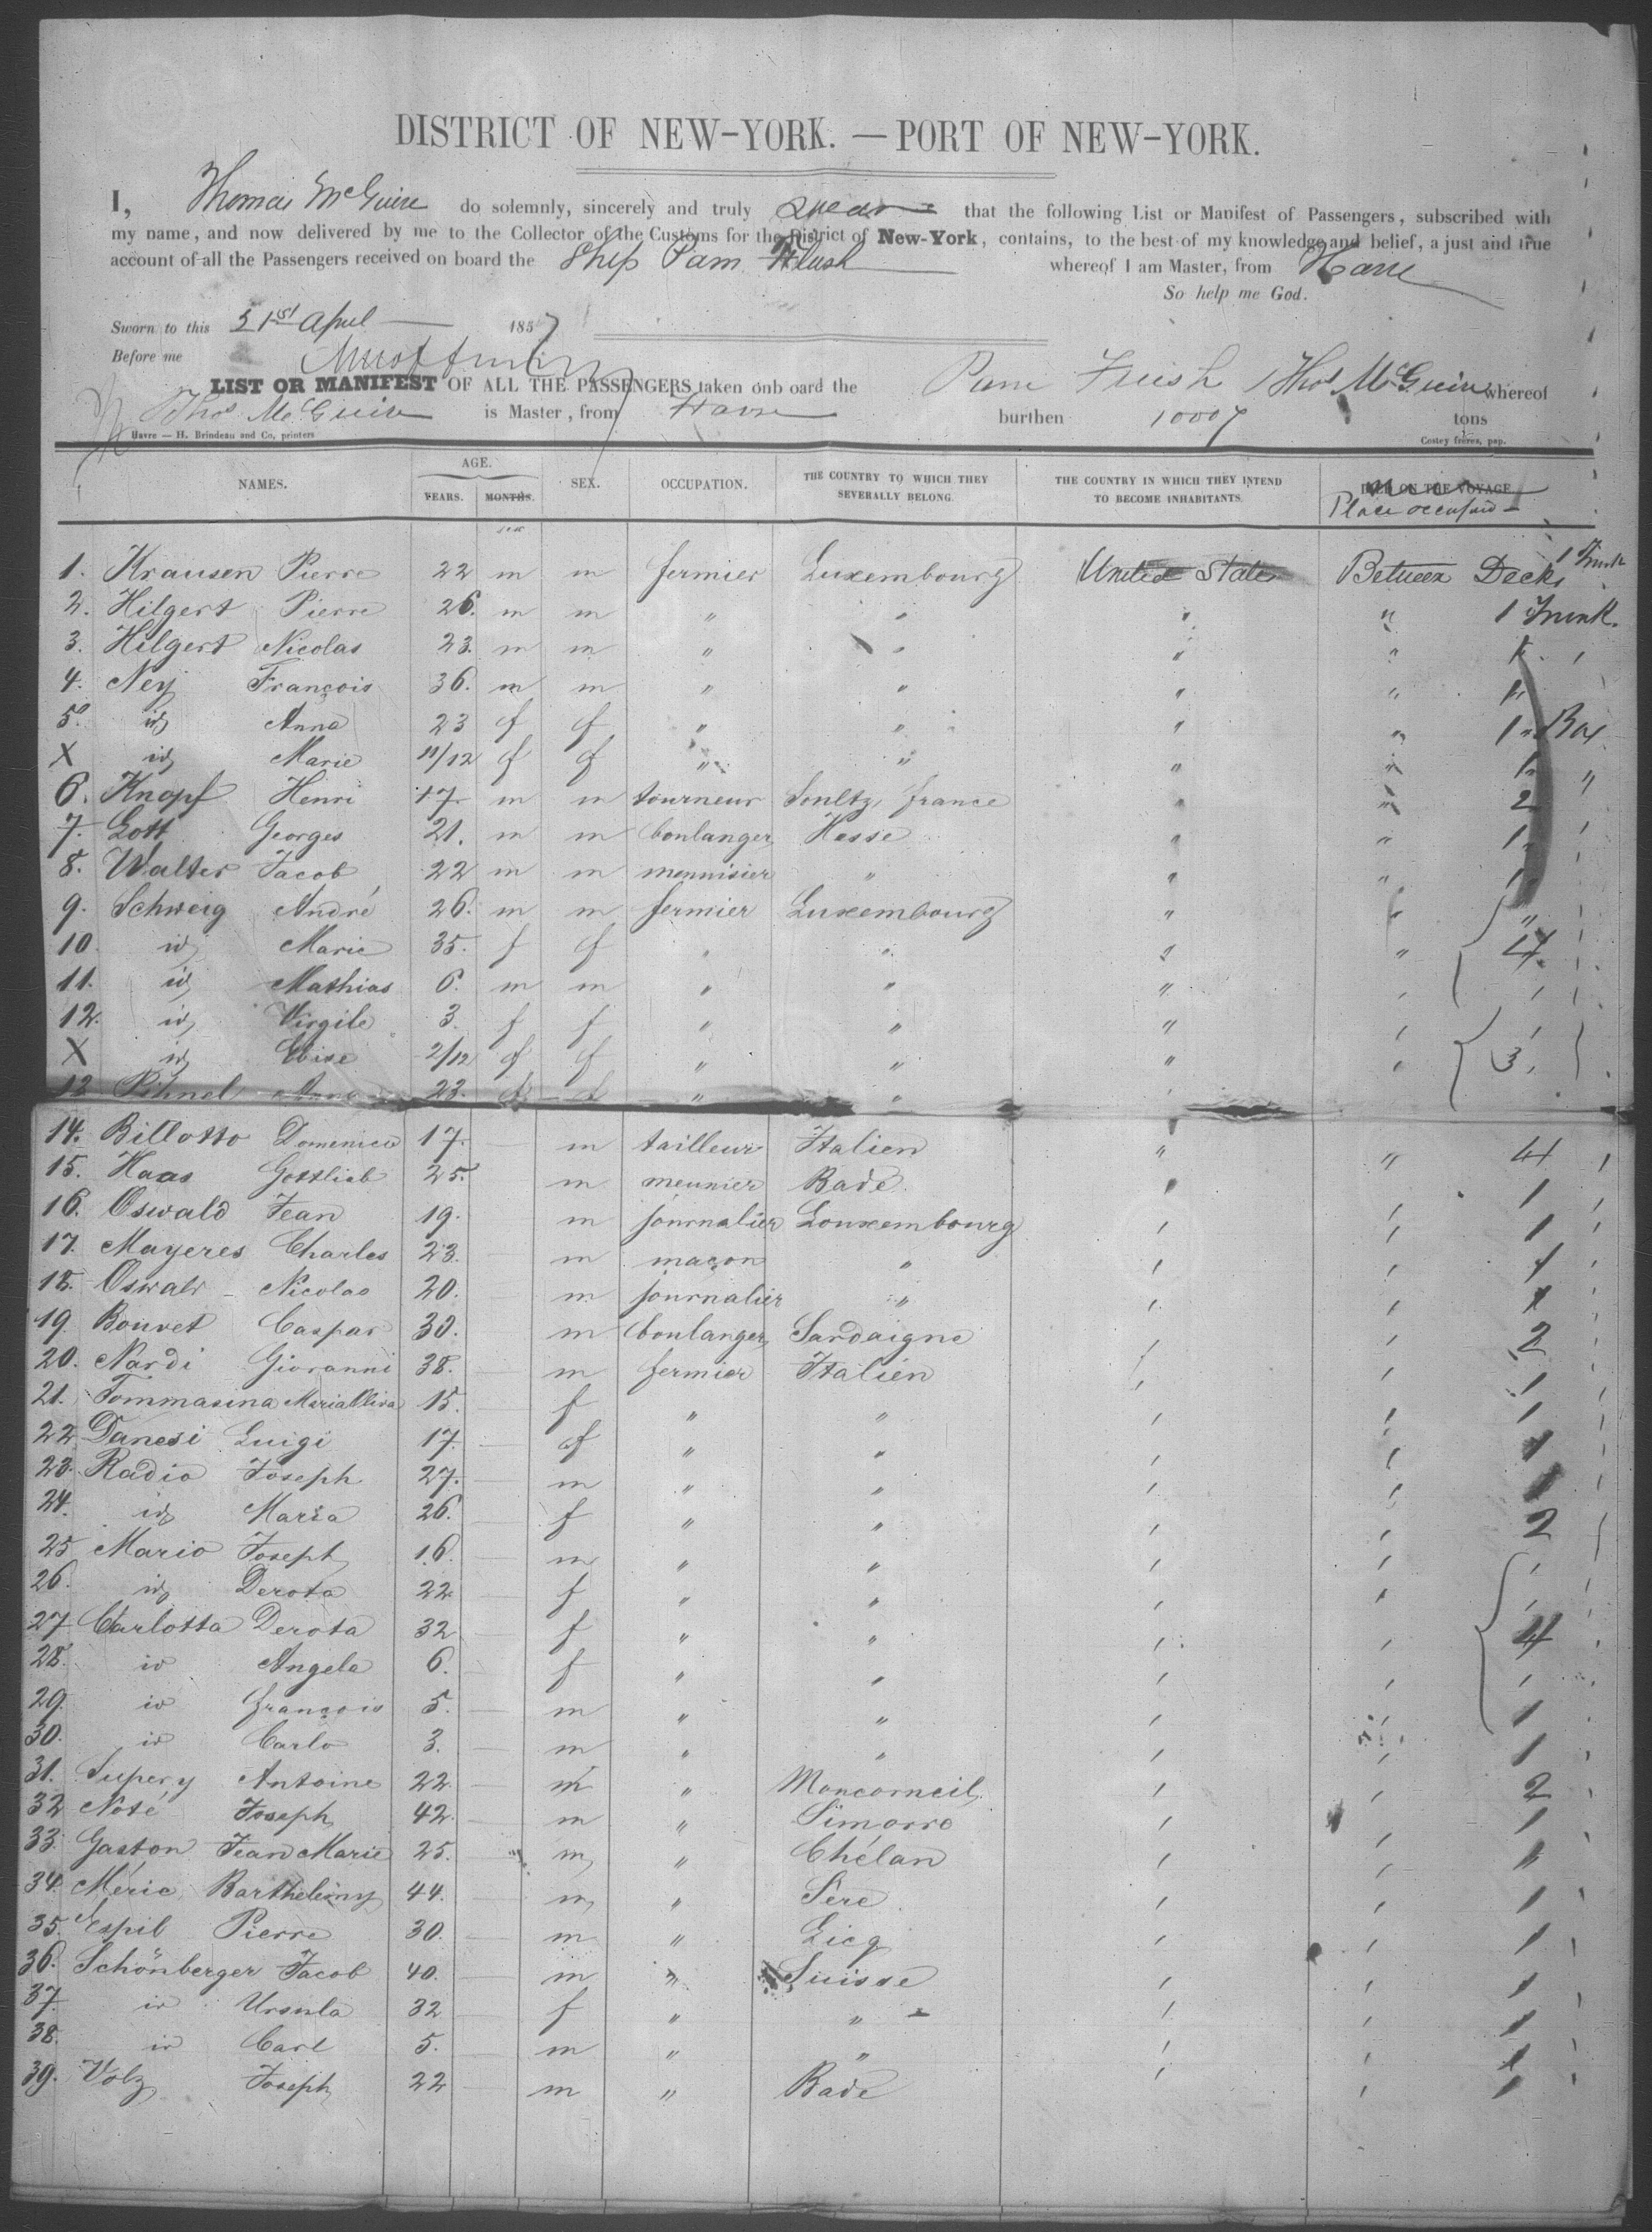 DISTRICT OF NEW-YORK. — PORT OF NEW-YORK.
I, Thomas McGuire do solemnly, sincerely and truly swear that the following List or Manifest of Passengers, subscribed with
my name, and now delivered by me to the Collector of the Customs for the District of New-York, contains, to the best of my knowledge and belief, a just and true
account of all the Passengers received on board the Ship Pam Flush whereof I am Master, from Havre
So help me God.
Sworn to this 21st April 1857
Before me
LIST OR MANIFEST OF ALL THE PASSENGERS taken onb oard the Pam Flush Thos McGuire whereof
Thos McGuire is Master, from Havre burthen 1000 tons
Havre — H. Brindeau and Co, printers Costey frères, pap.
NAMES. AGE. YEARS. MONTHS. SEX. OCCUPATION. THE COUNTRY TO WHICH THEY SEVERALLY BELONG. THE COUNTRY IN WHICH THEY INTEND TO BECOME INHABITANTS. DIED ON THE VOYAGE.
Place occupied
sex
1. Krausen Pierre 22 m m fermier Luxembourg United States Between Decks 1 Trunk
2. Hilgert Pierre 26. m m " " " " 1 Trunk.
3. Hilgert Nicolas 23. m m " " " "
4. Ney François 36. m m " " " " 1 "
5. id Anna 23 f f " " " " 1 " Box
X id Marie 11/12 f f " " " " 1 "
6. Knopf Henri 17. m m tourneur Soultz, france " " 2
7. Gott Georges 21. m m boulanger Hesse " " 1
8. Walter Jacob 22 m m menuisier " " " 1
9. Schweig André 26. m m fermier Luxembourg " " "
10. id Marie 35. f f " " " " 4.
11. id Mathias 6. m m " " " "
12. id Virgile 3. f f " " " "
X id Elise 2/12 f f " " " " 3
13 Anna 23. f f " "
14. Billotto Domenico 17. m tailleur Italien " " 4
15. Haas Gottlieb 25. m meunier Bade " 1
16. Oswald Jean 19. m journalier Louxembourg " " 1
17. Mayeres Charles 23. m maçon " " " 1
18. Oswald Nicolas 20. m journalier " " " 1
19 Bouvet Caspar 30. m boulanger Sardaigne " " 2
20. Nardi Giovanni 38. m fermier Italien " " 1
21. Tommasina Maria 15. f " " " " 1
22 Danesi Luigi 17. f " " " " 1
23. Radio Joseph 27. m " " " " 1
24. id Maria 26. f " " " " 2
25 Mario Joseph 16. m " " " "
26. id Derota 22 f " " " "
27 Carlotta Derota 32 f " " " " 4
28. id Angela 6. f " " " "
29. id françois 5. m " " " " 1
30. id Carlo 3. m " " " " 1
31. Supery Antoine 22. m " Moncorneil " " 2
32 Noté Joseph 42. m " Simorre " 1
33. Gaston Jean Marie 25. m " Chélan " "
34. Méric Barthelémy 44. m " Sere " " 1
35. Espil Pierre 30. m " Licq " " 1
36. Schönberger Jacob 40. m " Suisse " " 1
37. id Ursula 32 f " " " " 1
38. id Carl 5. m " " " " 1
39. Volz Joseph 22 m " Bade " 1